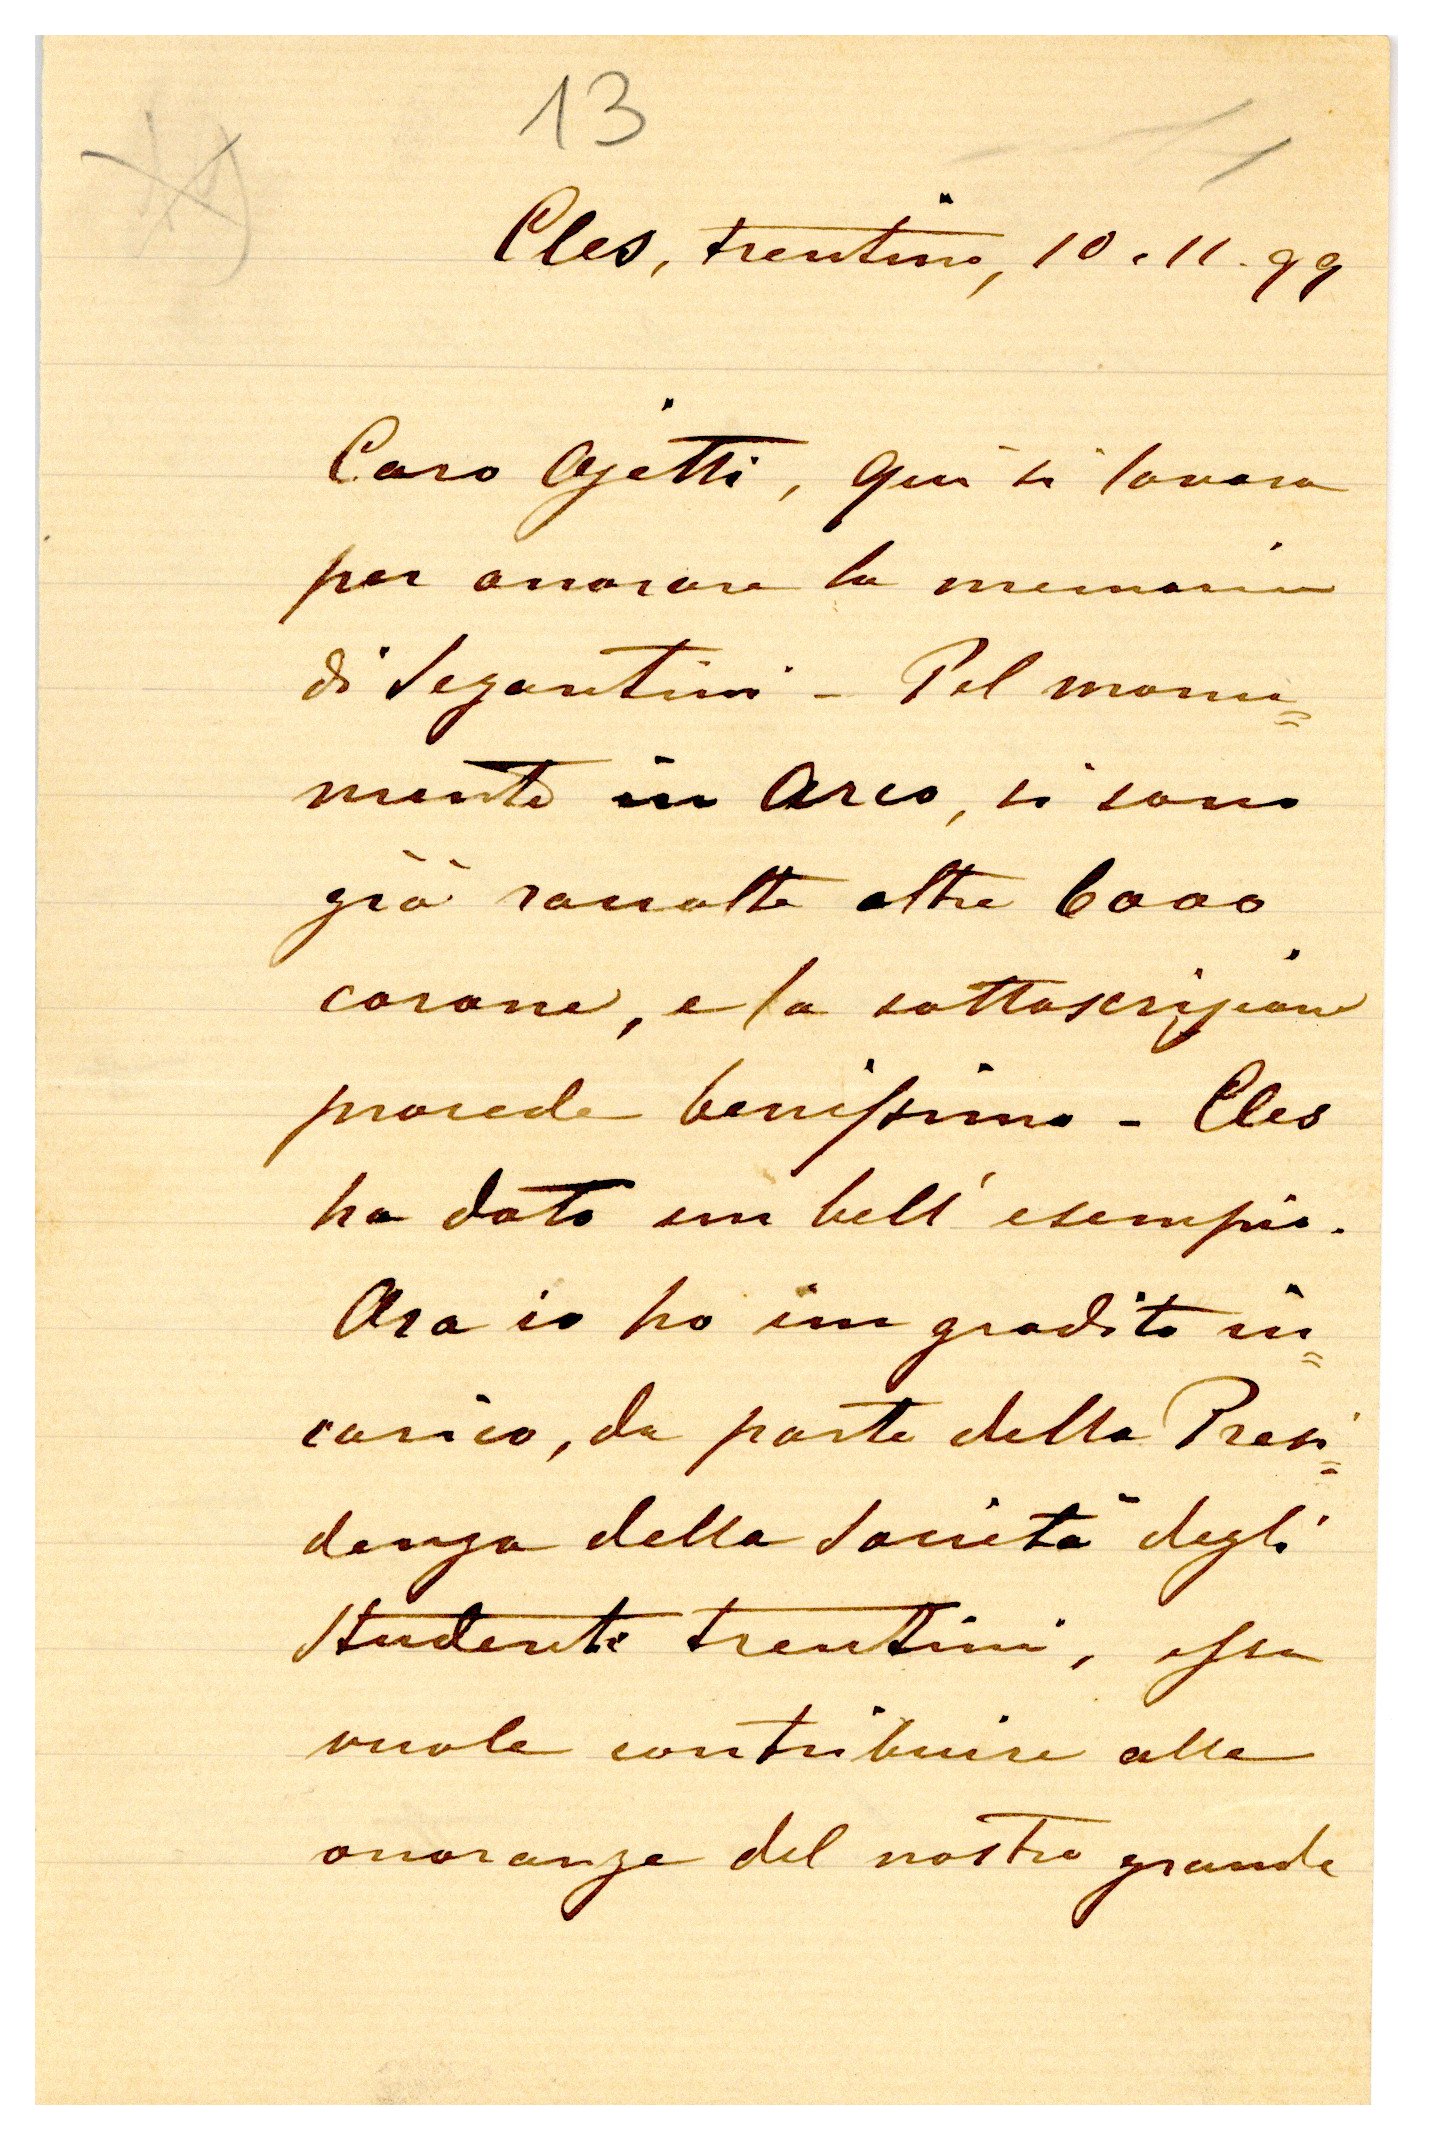 13
Cles, trentino, 10.11.99
Caro Ojetti, qui si lavora
per onorare la memoria
di Segantini - Pel monu=
mento in Arco, si sono
già raccolte oltre 6000
corone, e la sottoscrizione
procede benissimo - Cles
ha dato un bell' esempio.
Ora io ho un gradito in=
carico, da parte della Presi=
denza della Società degli
Studenti trentini, essa
vuole contribuire alle
onoranze del nostro grande